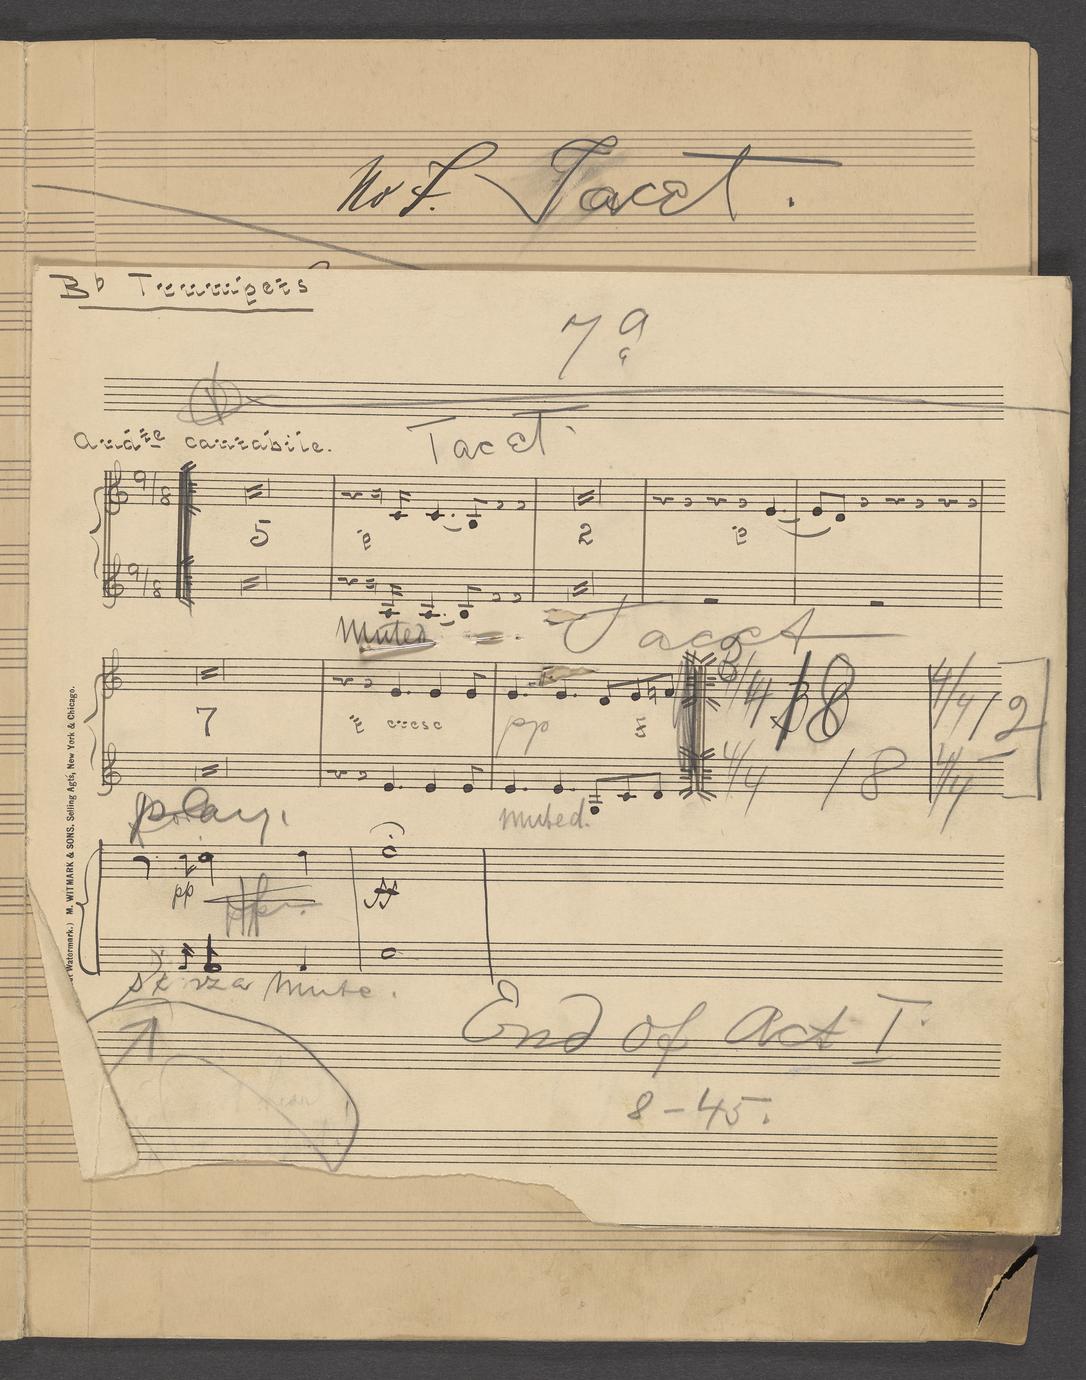 No 7. Tacet.
Bb Trumpets
7a
Tacet
Andte cantabile.
9/8
5 p 2 p
9/8
Muted Tacet
7 p cresc pp f 4/4 18 4/4 12
4/4 18 4/4
play. muted.
pp ff
senza Mute.
End of Act I
8-45.
t Watermark.) M. WITMARK & SONS, Selling Agts, New York & Chicago.